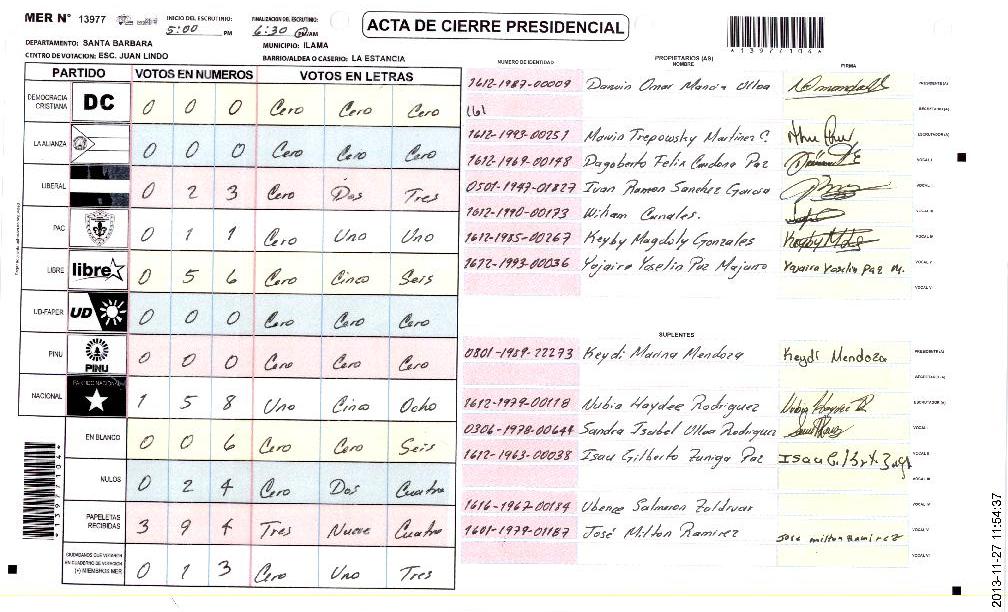 MER N° 13977
INICIO DEL ESCRUTINIO:
5:00 PM
FINALIZACION DEL ESCRUTINIO:
6:30 PM/AM
ACTA DE CIERRE PRESIDENCIAL
*13977104*
DEPARTAMENTO: SANTA BARBARA
MUNICIPIO: ILAMA
CENTRO DE VOTACION: ESC. JUAN LINDO
BARRIO/ALDEA O CASERIO: LA ESTANCIA
PARTIDO VOTOS EN NUMEROS VOTOS EN LETRAS
DEMOCRACIA CRISTIANA DC 0 0 0 Cero Cero Cero
LA ALIANZA 0 0 0 Cero Cero Cero
LIBERAL 0 2 3 Cero Dos Tres
PAC 0 1 1 Cero Uno Uno
LIBRE libre 0 5 6 Cero Cinco Seis
UD-FAPER UD 0 0 0 Cero Cero Cero
PINU PINU 0 0 0 Cero Cero Cero
NACIONAL PARTIDO NACIONAL 1 5 8 Uno Cinco Ocho
EN BLANCO 0 0 6 Cero Cero Seis
NULOS 0 2 4 Cero Dos Cuatro
PAPELETAS RECIBIDAS 3 9 4 Tres Nueve Cuatro
CIUDADANOS QUE VOTARON EN CUADERNO DE VOTACION (+) MIEMBROS MER 0 1 3 Cero Uno Tres
*13977104*
NUMERO DE IDENTIDAD PROPIETARIOS (AS) NOMBRE FIRMA
1612-1987-00009 Darwin Omar Mancia Ulloa PRESIDENTE(A)
161 SECRETARIO(A)
1612-1993-00251 Marvin Trepowsky Martinez C. ESCRUTADOR(A)
1612-1969-00148 Dagoberto Felix Cardona Paz VOCAL I
0501-1947-01827 Ivan Ramon Sanchez Garcia VOCAL
1612-1990-00173 Wiliam Canales. VOCAL III
1612-1985-00267 Keyby Magdoly Gonzales VOCAL IV
1612-1993-00036 Yojaira Yoselin Paz Majano Yojaira Yoselin Paz M. VOCAL V
VOCAL VI
SUPLENTES
0801-1959-22273 Keydi Marina Mendoza Keydi Mendoza PRESIDENTE(A)
SECRETARIO(A)
1612-1979-00118 Nubia Haydee Rodriguez Nubia Haydee R. ESCRUTADOR(A)
0306-1978-00644 Sandra Isabel Ulloa Rodriguez VOCAL
1612-1963-00038 Isau Gilberto Zuniga Paz VOCAL II
VOCAL III
1616-1962-00184 Ubence Salmeron Zaldivar VOCAL IV
1601-1979-01187 José Milton Ramirez Jose milton Ramirez VOCAL V
VOCAL VI
2013-11-27 11:54:37